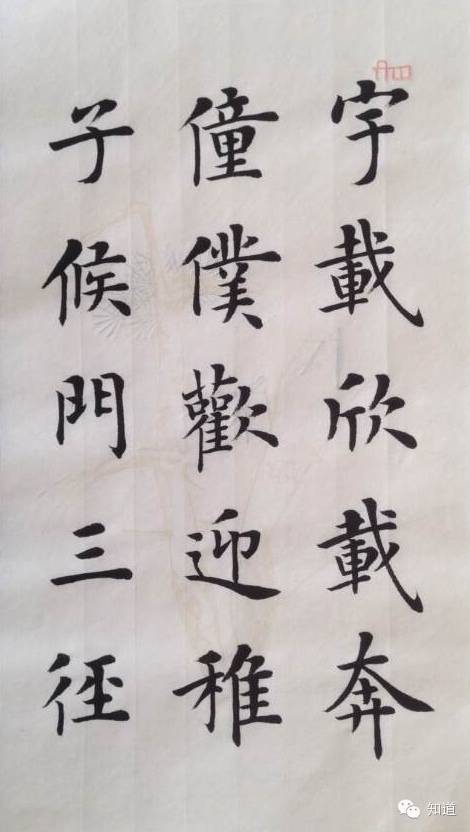 宇載欣載奔
僮僕歡迎稚
子候門三徑
知道